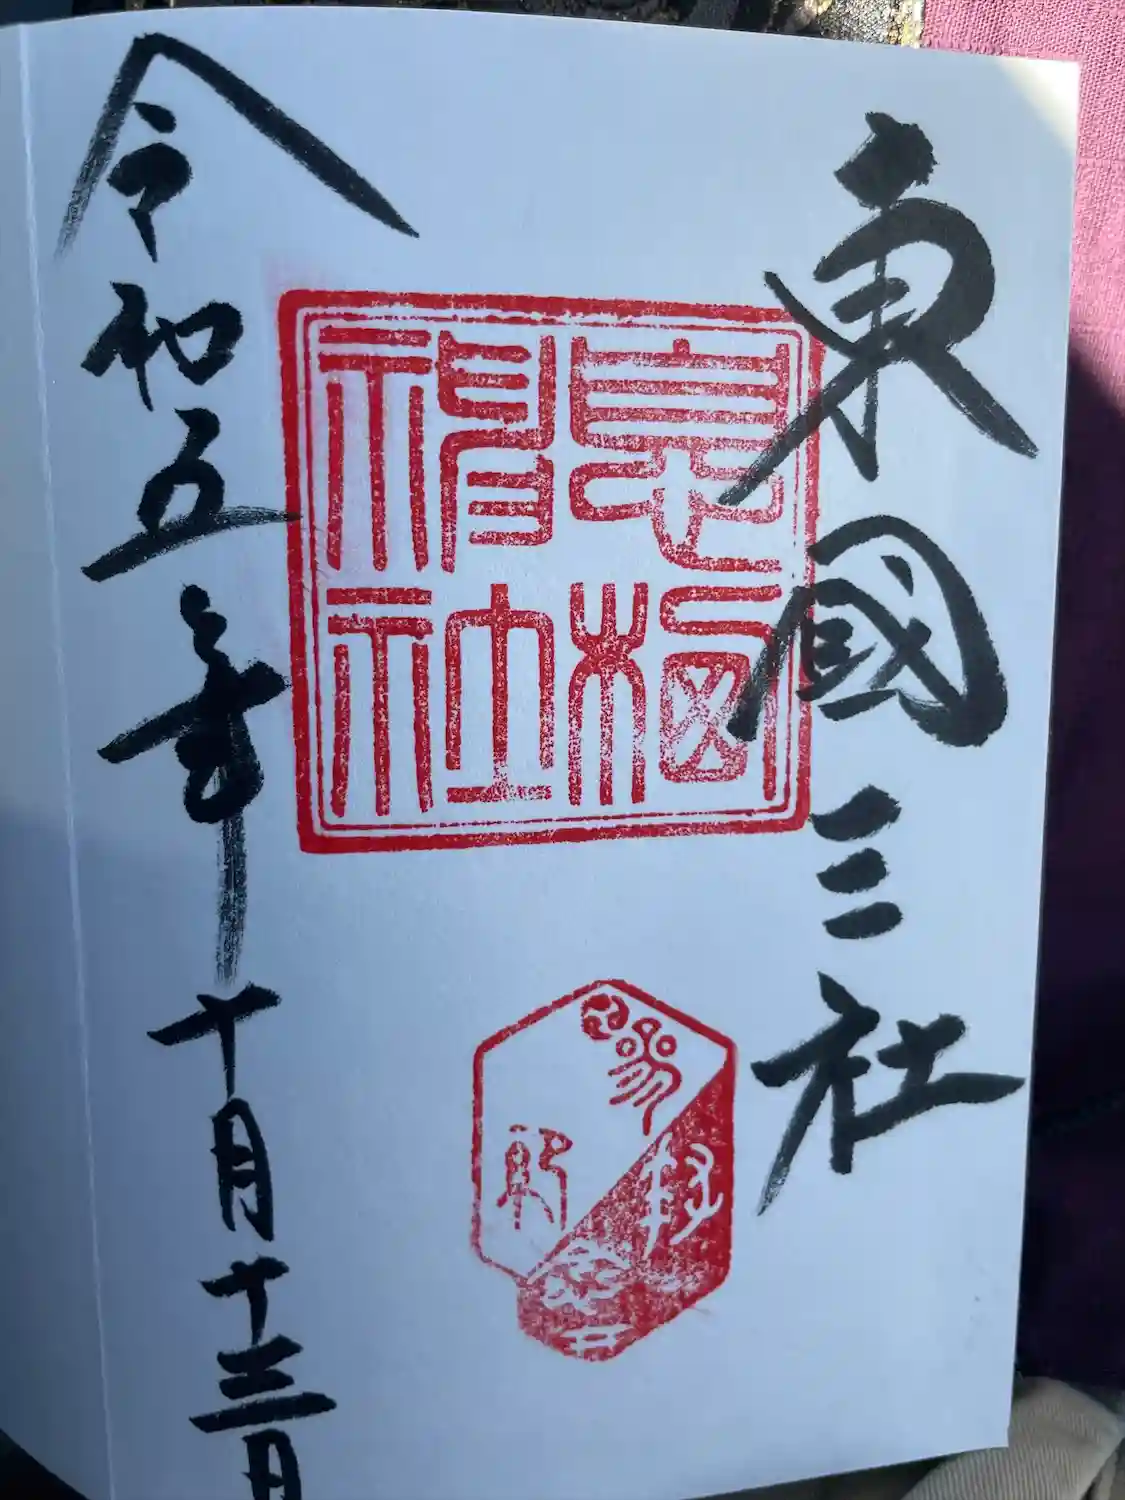 東國三社
息栖
神社
参拝
令和五年十月十三日